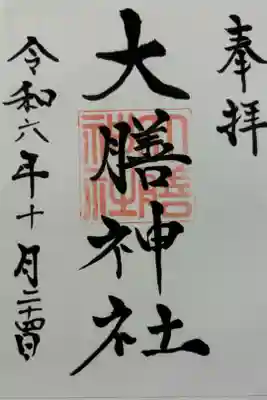 奉拝
大膳神社
令和六年十月二十四日